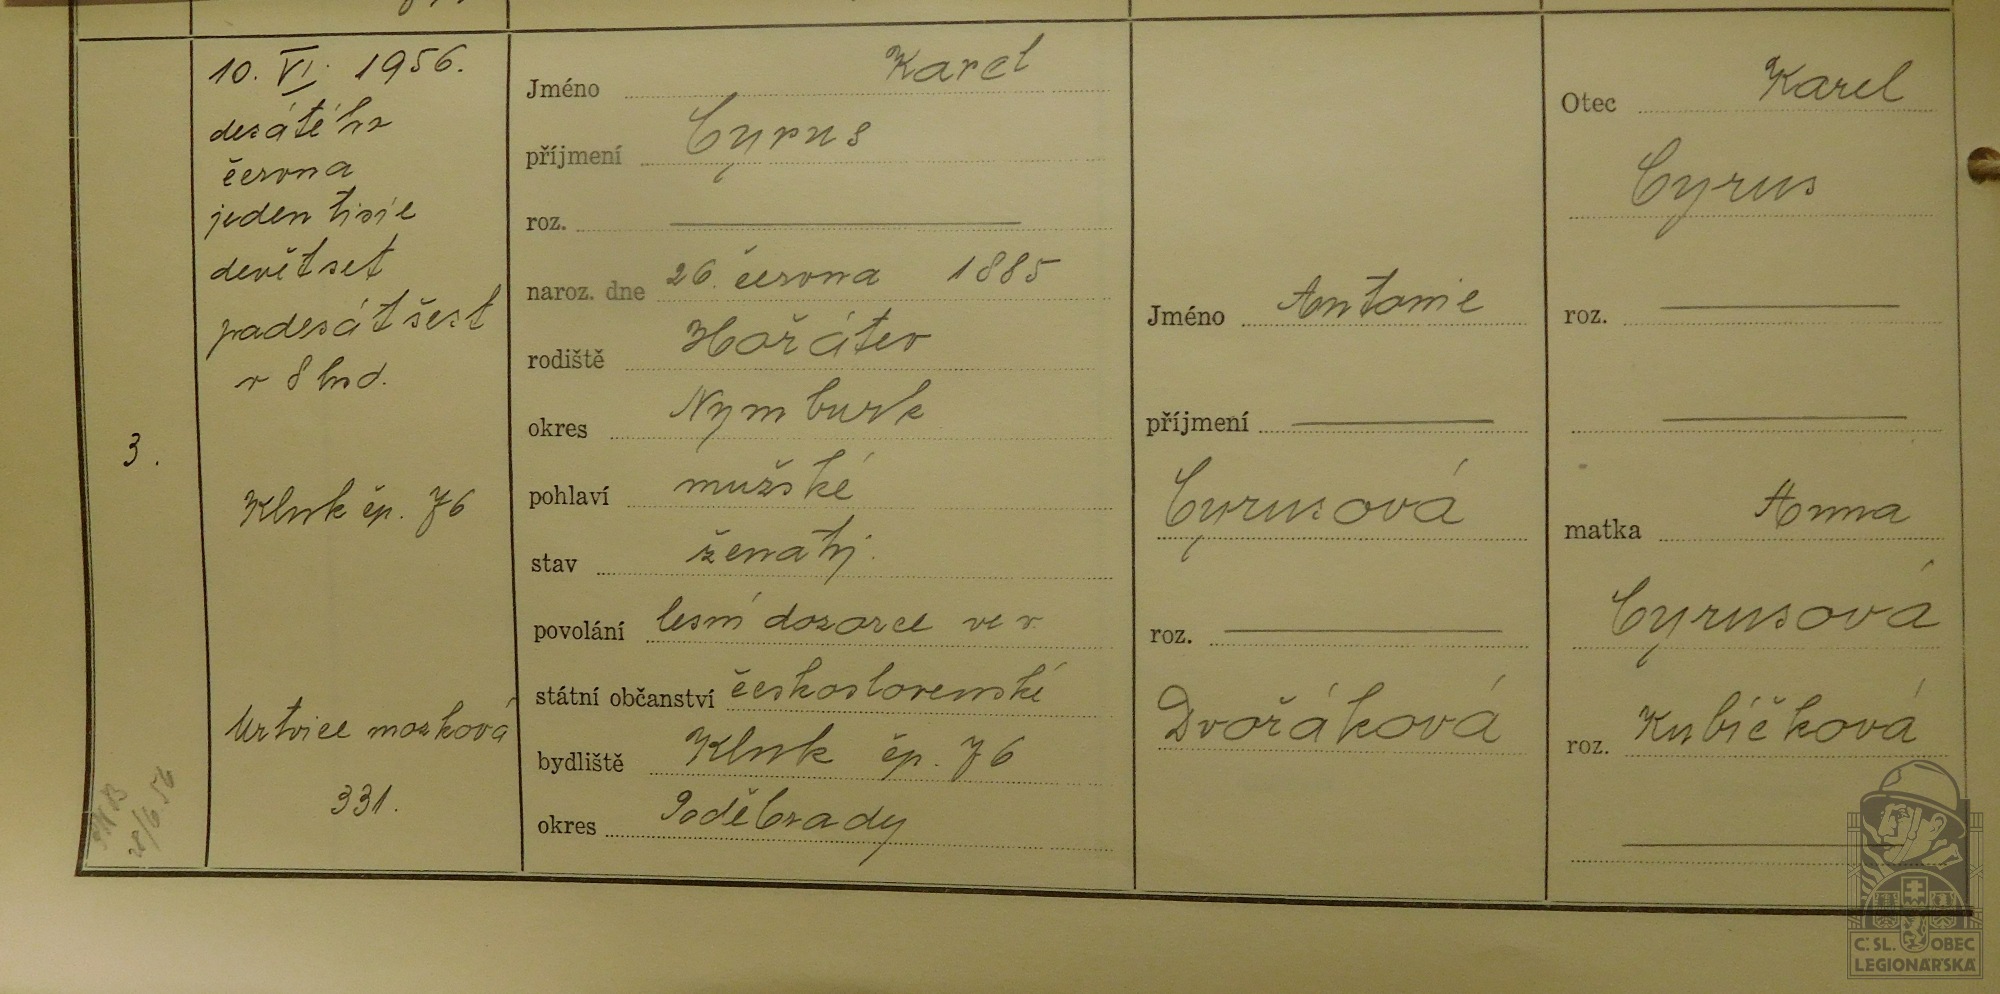 3.
10. VI. 1956.
desátého
června
jeden tisíc
devětset
padesát šest
v 8 hod.
Kluk čp. 76
Mrtvice mozková
331.
Jméno Karel
příjmení Cyrus
roz.
naroz. dne 26. června 1885
rodiště Hořátev
okres Nymburk
pohlaví mužské
stav ženatý.
povolání lesní dozorce ve v.
státní občanství československé
bydliště Kluk čp. 76
okres Poděbrady
Jméno Antonie
příjmení
Cyrusová
roz.
Dvořáková
Otec Karel
Cyrus
roz.
matka Anna
Cyrusová
roz. Kubíčková
Č. SL. OBEC
LEGIONÁŘSKÁ